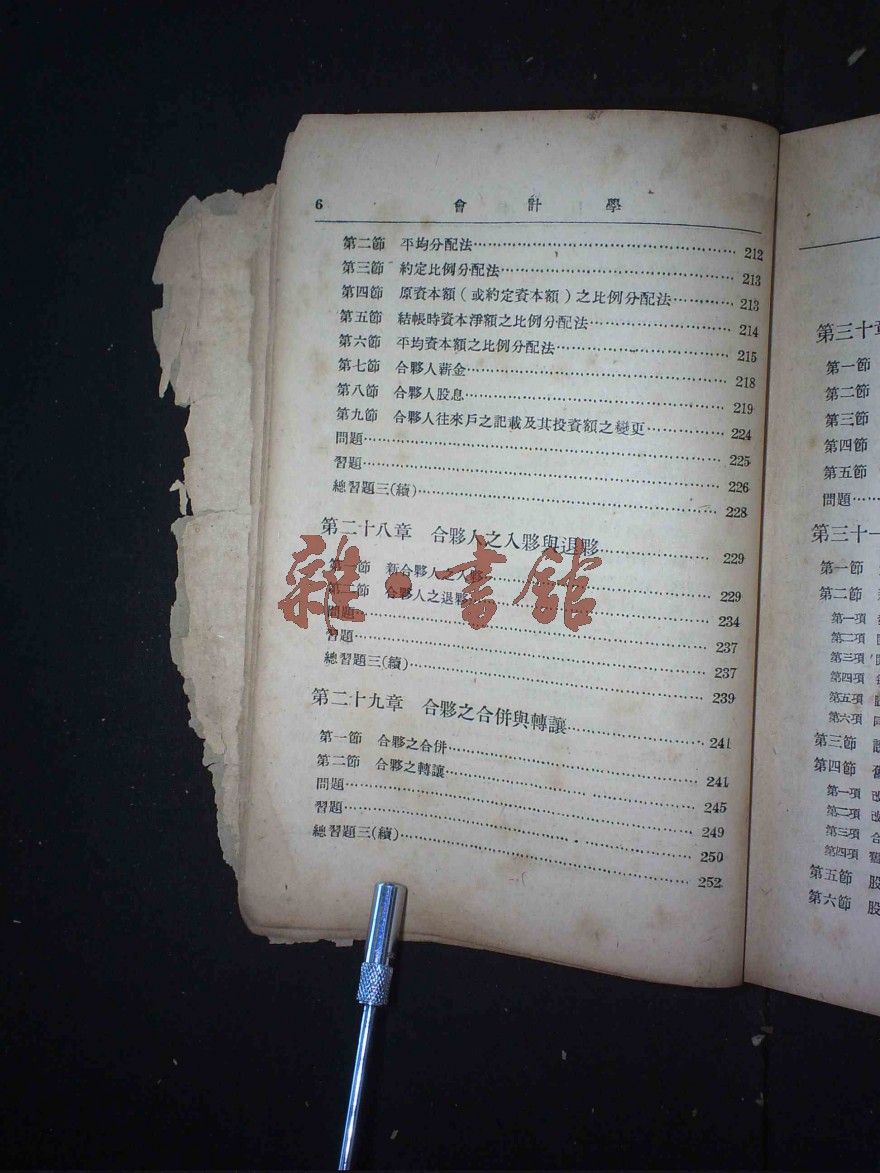 6 會計學
第二節 平均分配法 212
第三節 約定比例分配法 213
第四節 原資本額(或約定資本額)之比例分配法 213
第五節 結帳時資本淨額之比例分配法 214
第六節 平均資本額之比例分配法 215
第七節 合夥人薪金 218
第八節 合夥人股息 219
第九節 合夥人往來戶之記載及其投資額之變更 224
問題 225
習題 226
總習題三(續) 228
第二十八章 合夥人之入夥與退夥 229
第一節 新合夥人之入夥 229
第二節 合夥人之退夥 234
問題 237
習題 237
總習題三(續) 239
第二十九章 合夥之合併與轉讓 241
第一節 合夥之合併 241
第二節 合夥之轉讓 245
問題 249
習題 250
總習題三(續) 252
雜·書館
第三十章
第一節
第二節
第三節
第四節
第五節
問題
第三十一
第一節
第二節
第一項
第二項
第三項
第四項
第五項
第六項
第三節
第四節
第一項 改
第二項 改
第三項 合
第四項
第五節 股
第六節 股